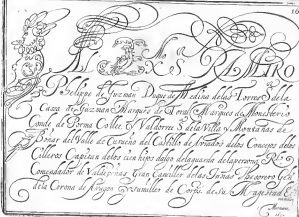 RAMIRO
Phelippe de Guzmán Duque de Medina de las Torres S de la
Cassa de Guzman Marques de Toral Marques de Monasterio
Conde de Parma Colle, y Valdorria S de la Villa y Montañas de
Boñar del Valle de Curueño del Castillo de Aviados delos Concejos delos
Cilleros Capitan delos cien hijos dalgo dela guarda dela persona Rl
Comendador de Valdepeñas Gran Canciller delas Indias thesorero Genl
dela Corona de Aragon y sumiller de Corps. de su Magestad